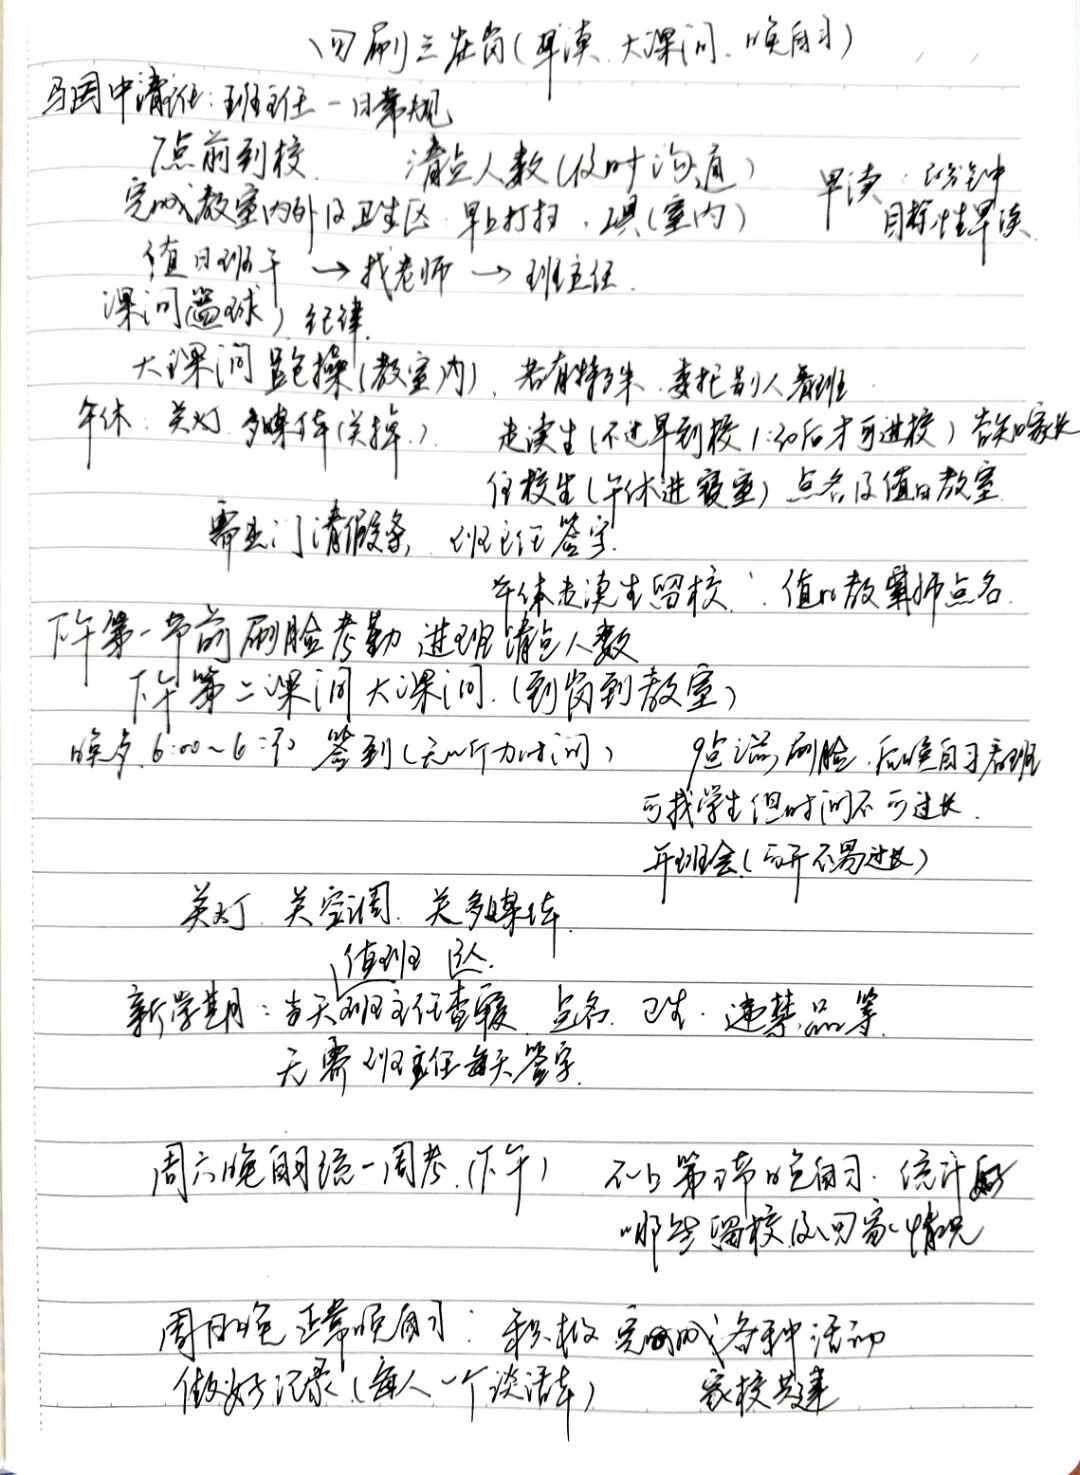 四刷三在岗（早读、大课间、晚自习）
班主任一日常规
7点前到校 清点人数（及时沟通）
早读： 分钟
完成教室内外及卫生区 早上打扫 工具（室内）
目标性早读
值日班干 → 找老师 → 班主任
课间 纪律
大课间 跑操（教室内） 若有特殊 委托别人看班
午休：关灯 多媒体（关掉） 走读生（不过早到校 1:30后才可进校）告知家长
住校生（午休进寝室）点名及值日教室
需出门请假条，班主任签字
午休走读生留校：值日教 师点名
下午第一节前刷脸考勤 进班清点人数
下午第二课间大课间（到岗到教室）
6:00~6: 签到（无听力时间） 9点 刷脸，后晚自习看班
可找学生但时间不可过长
开班会（可开不易过长）
关灯 关空调 关多媒体
值班
新学期：当天班主任查寝 点名 卫生 违禁品等
无需班主任每天签字
周六晚自习统一周考（下午） 不上第 节晚自习 统计好
哪些留校及回家情况
周日晚正常晚自习：积极完成各种活动
做好记录（每人一个谈话本） 家校共建